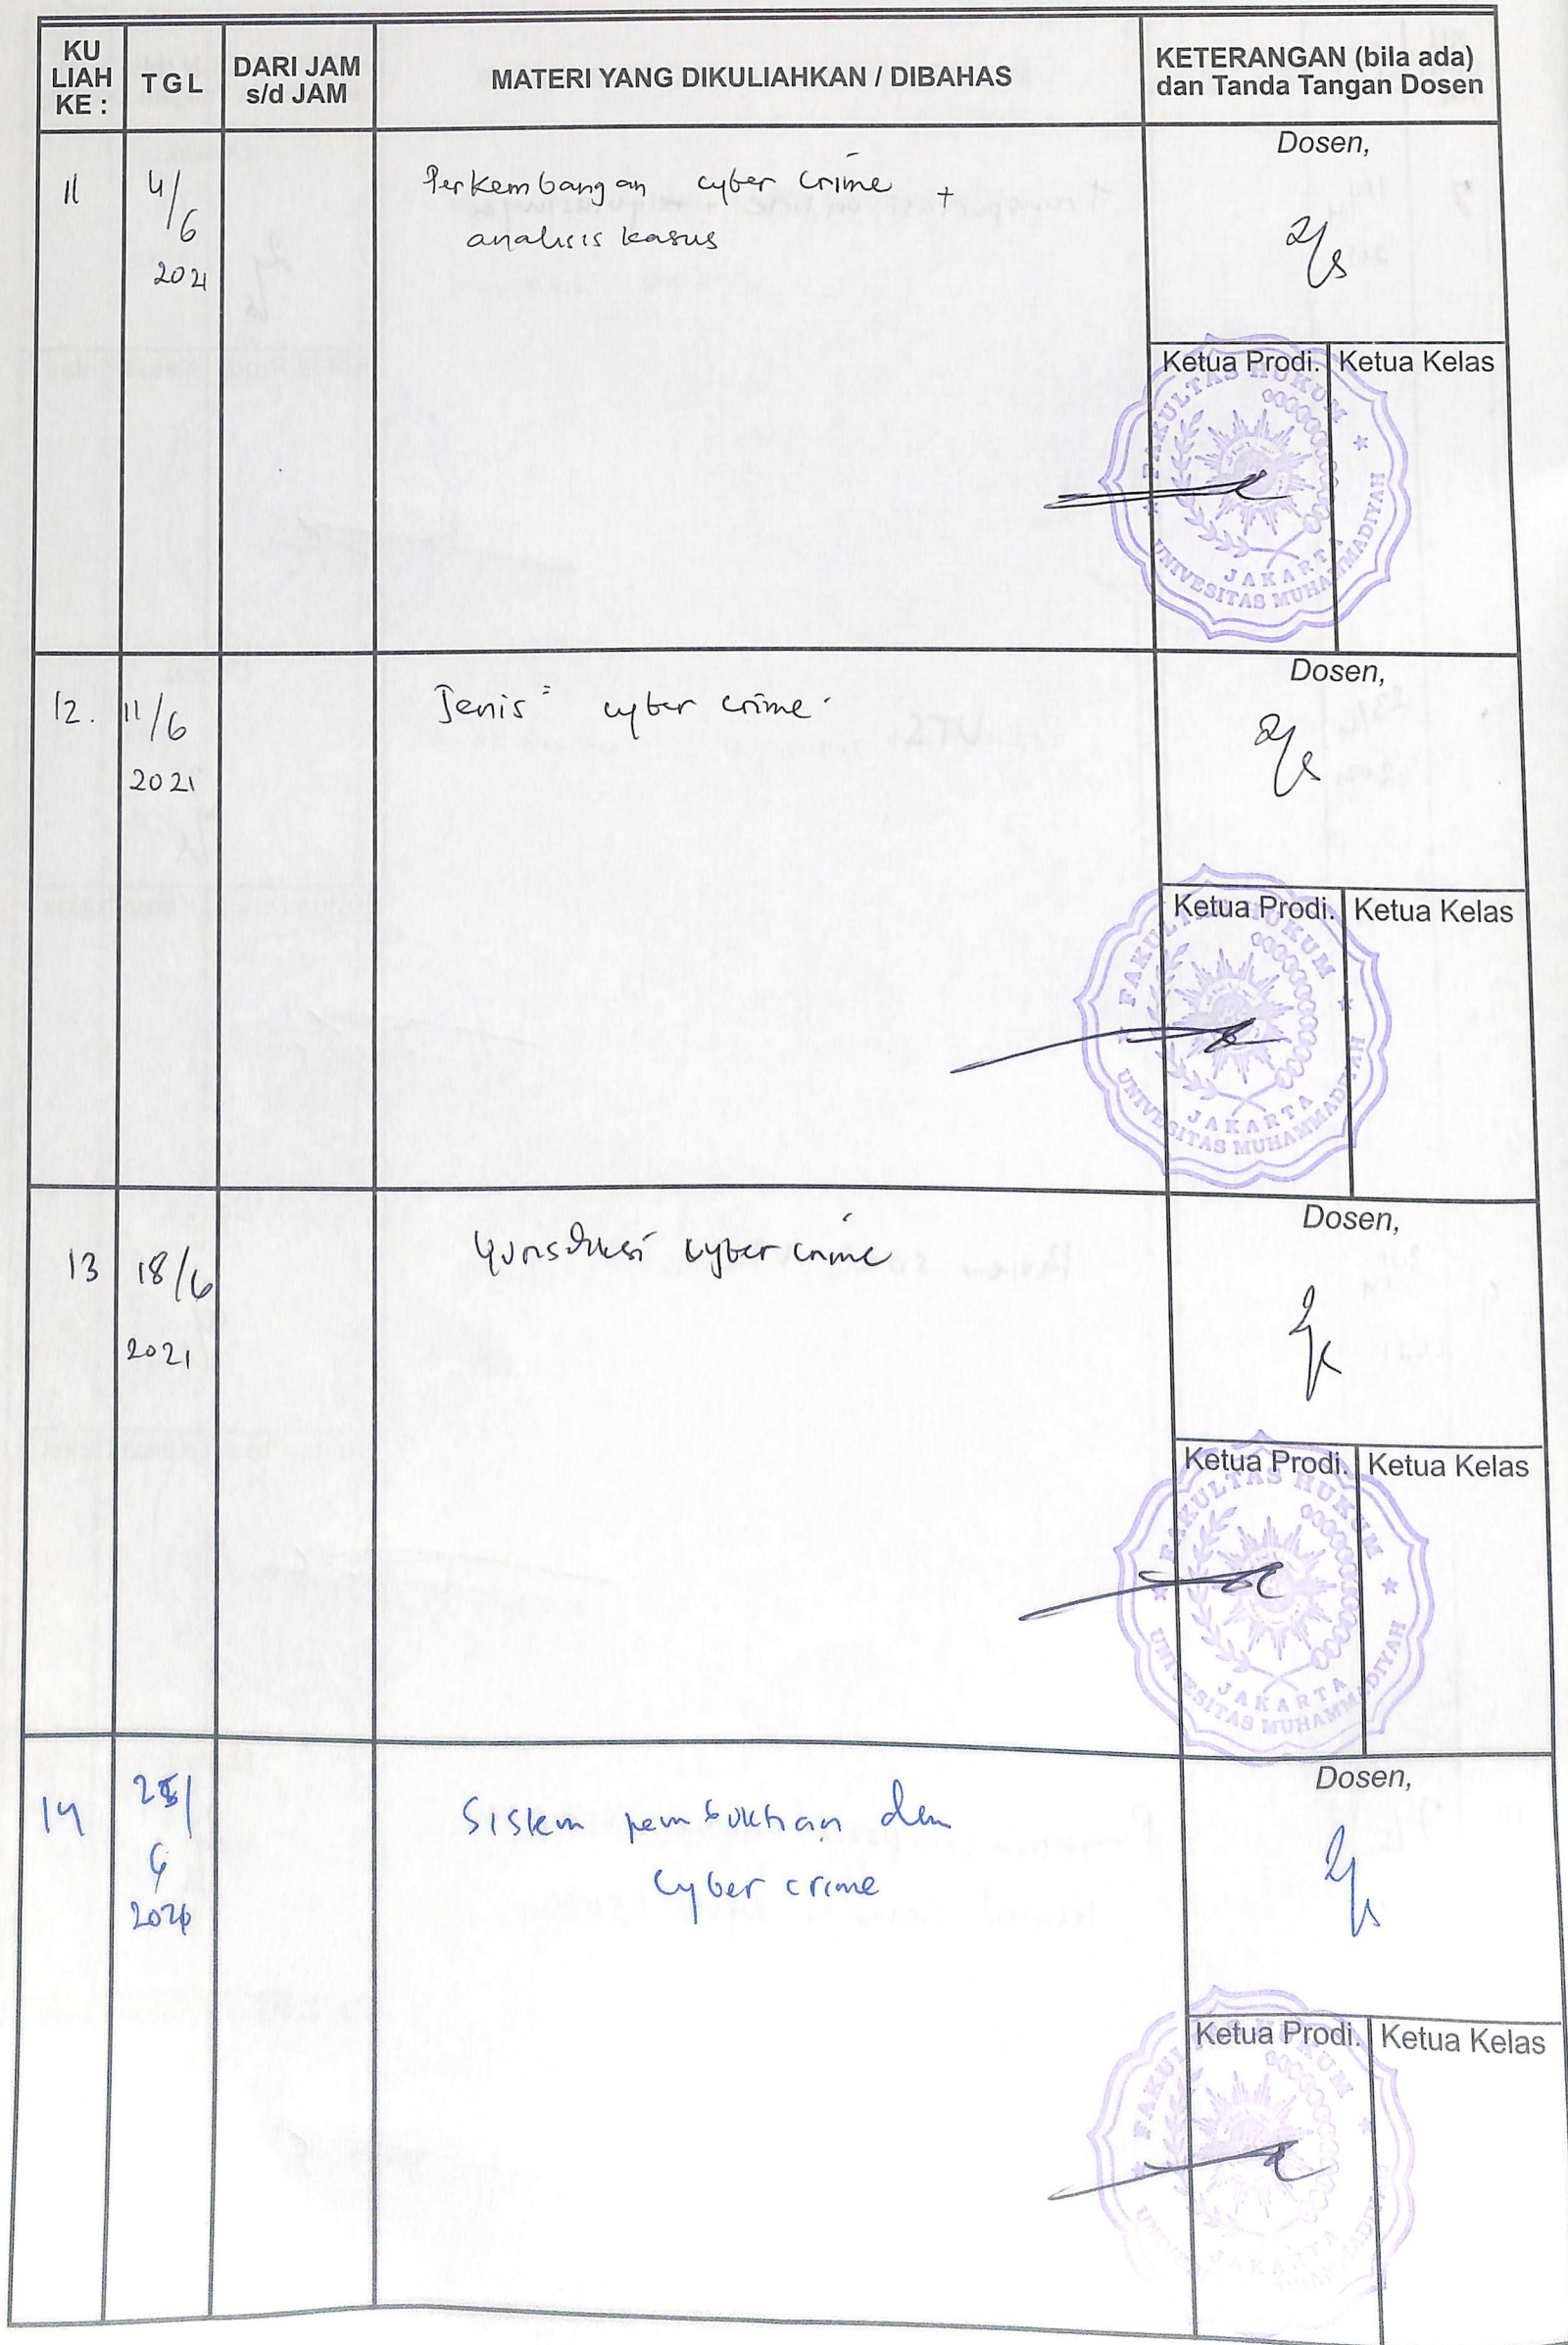 KU LIAH KE :
T G L
DARI JAM s/d JAM
MATERI YANG DIKULIAHKAN / DIBAHAS
KETERANGAN (bila ada) dan Tanda Tangan Dosen
11
4/6
2021
Perkembangan cyber crime +
analisis kasus
Dosen,
Ketua Prodi.
Ketua Kelas
FAKULTAS HUKUM
JAKARTA
UNIVESITAS MUHAMMADIYAH
12.
11/6
2021
Jenis² cyber crime.
Dosen,
Ketua Prodi.
Ketua Kelas
FAKULTAS HUKUM
JAKARTA
UNIVESITAS MUHAMMADIYAH
13
18/6
2021
Yurisdiksi cyber crime
Dosen,
Ketua Prodi.
Ketua Kelas
FAKULTAS HUKUM
JAKARTA
UNIVESITAS MUHAMMADIYAH
14
25/
6
2021
Sistem pembuktian dlm
cyber crime
Dosen,
Ketua Prodi.
Ketua Kelas
FAKULTAS HUKUM
JAKARTA